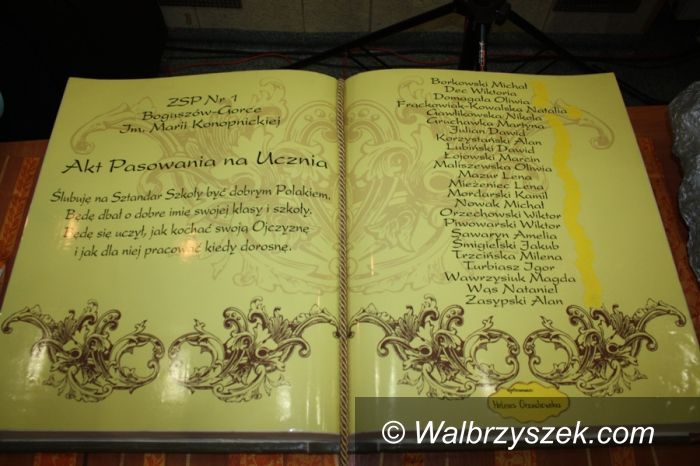 ZSP Nr 1
Boguszów-Gorce
Im. Marii Konopnickiej
Akt Pasowania na Ucznia
Ślubuję na Sztandar Szkoły być dobrym Polakiem,
Będę dbał o dobre imię swojej klasy i szkoły.
Będę się uczył, jak kochać swoją Ojczyznę
i jak dla niej pracować kiedy dorosnę.
Borkowski Michał
Dec Wiktoria
Domagała Oliwia
Frąckowiak-Kowalska Natalia
Gawlikowska Nikola
Gruchawka Martyna
Julian Dawid
Korzystański Alan
Lubiński Dawid
Łojowski Marcin
Maliszewska Oliwia
Mazur Lena
Mieżeniec Lena
Mordarski Kamil
Nowak Michał
Orzechowski Wiktor
Piwowarski Wiktor
Sawaryn Amelia
Śmigielski Jakub
Trzcińska Milena
Turbiasz Igor
Wawrzysiuk Magda
Wąs Nataniel
Zasypski Alan
© Walbrzyszek.com